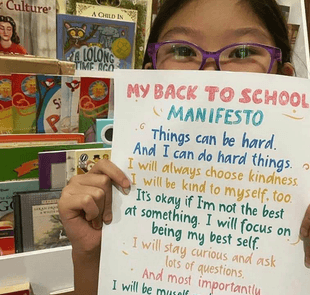 Culture
A CHILD IN
A LOLONG
TIME AGO
MY BACK TO SCHOOL
MANIFESTO
Things can be hard.
And I can do hard things.
I will always choose kindness.
I will be kind to myself, too.
It's okay if I'm not the best
at something. I will focus on
being my best self.
I will stay curious and ask
lots of questions.
And most importantly
I will be myself